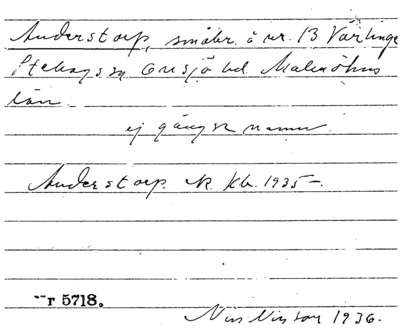 Anderstorp, småbr. å nr. 13 Värlinge
Stehags sn. Onsjö hd. Malmöhus
län.
ej gängse namn.
Anderstorp. N. Kb. 1935–.
r 5718.
Nils Nilsson 1936.